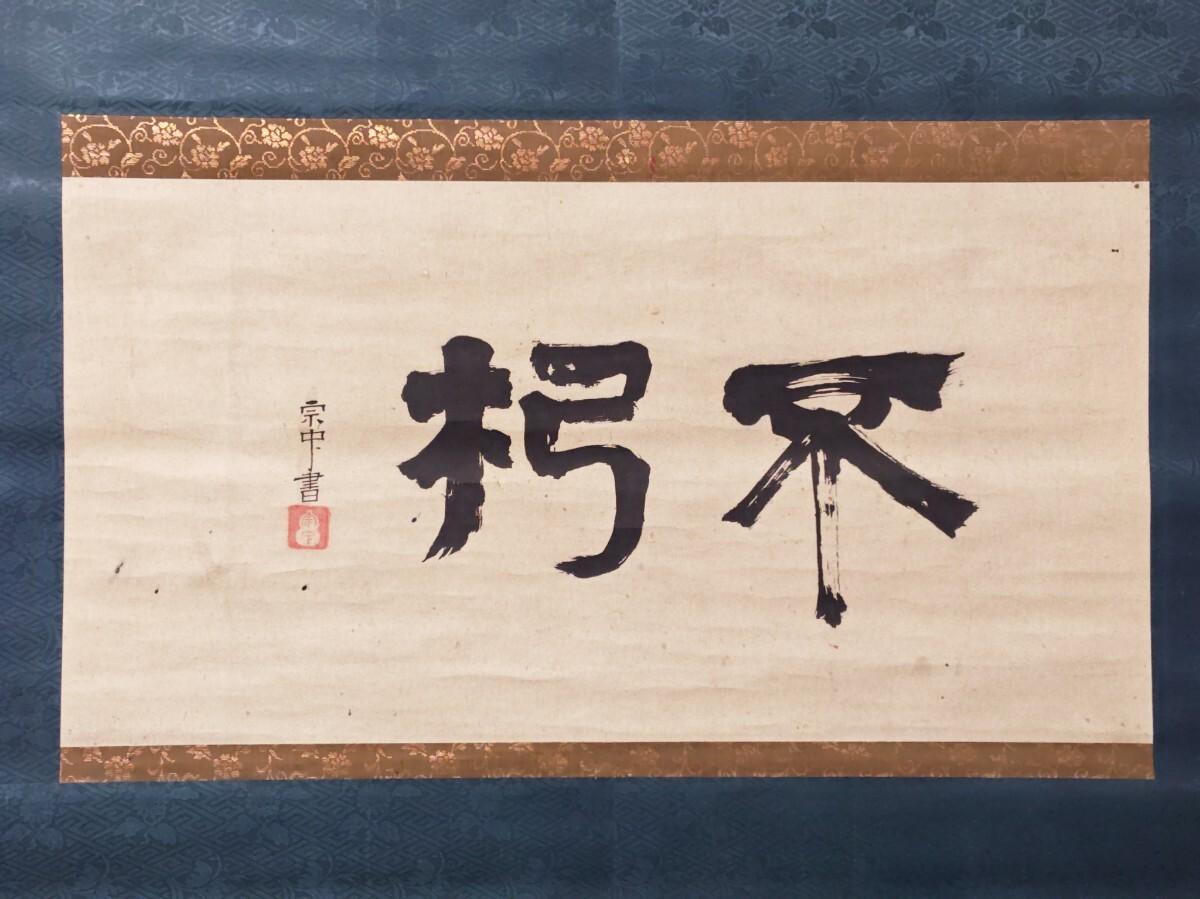 不朽
宗中書